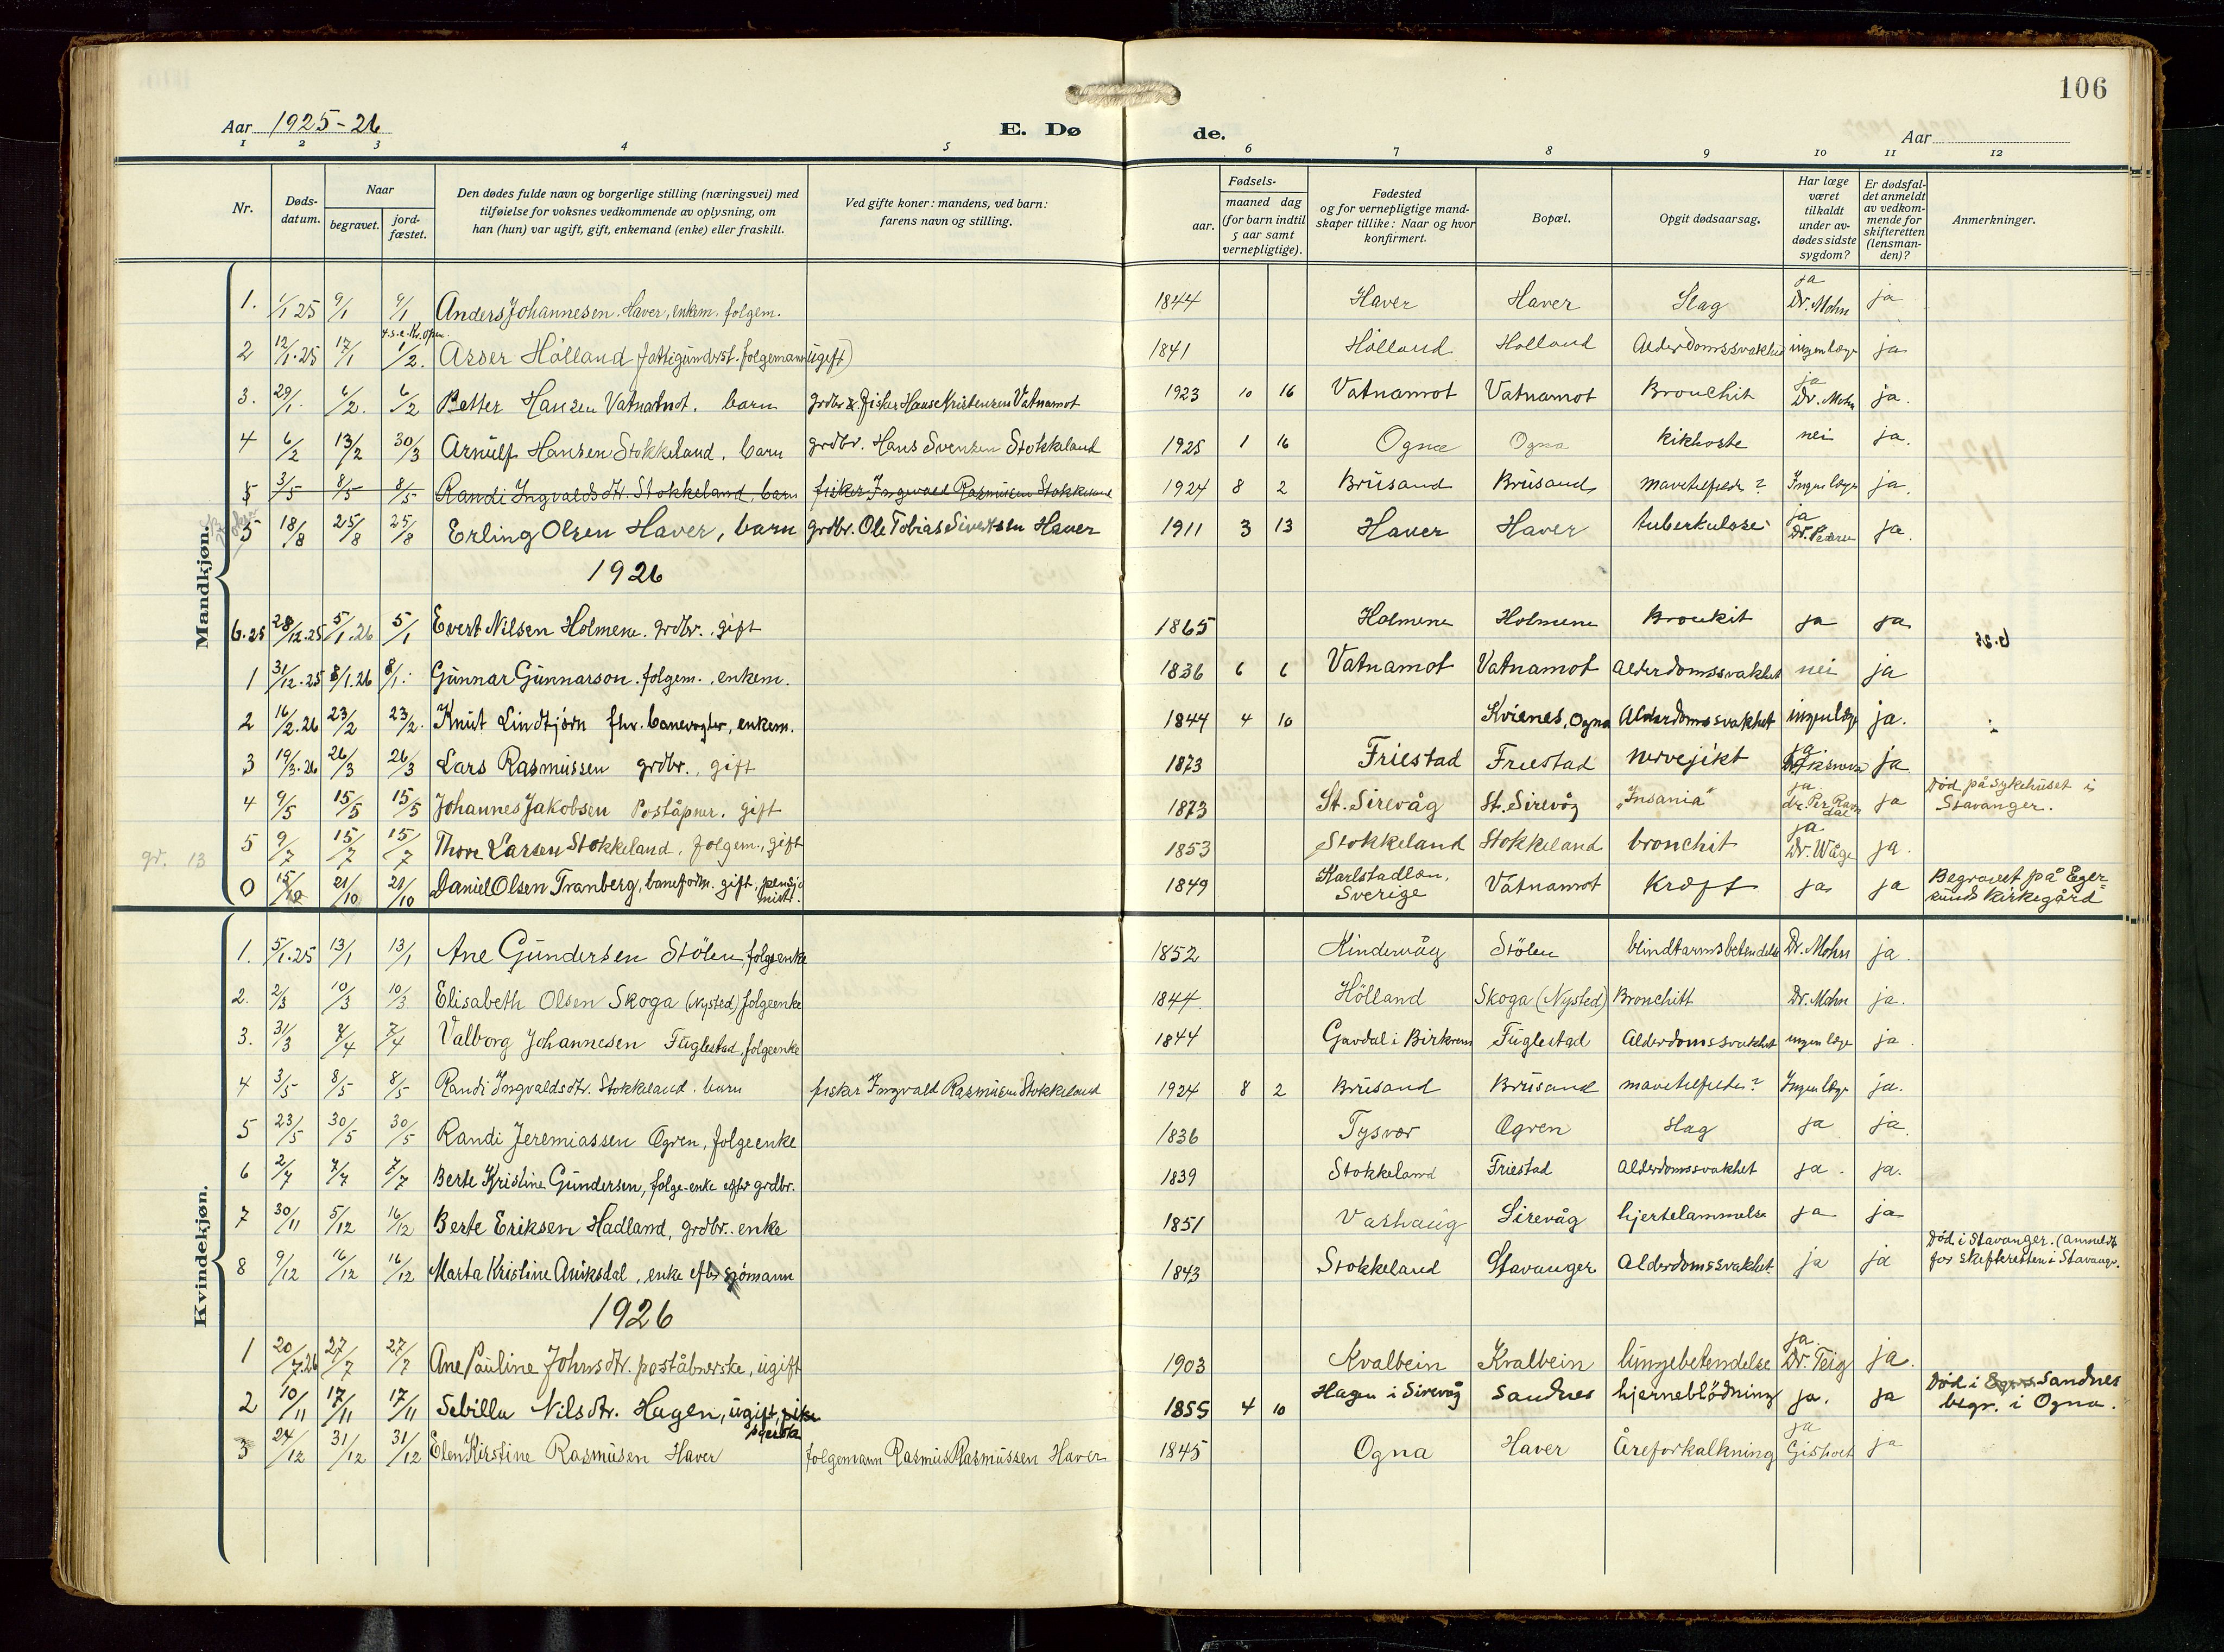 106
Aar 1925-26
E. Dø de.
Aar
1 2 3 4 5 6 7 8 9 10 11 12
Nr.
Døds-datum.
Naar
begravet.
jord-fæstet.
Den dødes fulde navn og borgerlige stilling (næringsvei) med
tilføielse for voksnes vedkommende av oplysning, om
han (hun) var ugift, gift, enkemand (enke) eller fraskilt.
Ved gifte koner: mandens, ved barn:
farens navn og stilling.
Fødsels-
aar.
maaned dag
(for barn indtil
5 aar samt
vernepligtige).
Fødested
og for vernepligtige mand-
skaper tillike: Naar og hvor
konfirmert.
Bopæl.
Opgit dødsaarsag.
Har læge
været
tilkaldt
under av-
dødes sidste
sygdom?
Er dødsfal-
det anmeldt
av vedkom-
mende for
skifteretten
(lensman-
den)?
Anmerkninger.
Mandkjøn.
1. 1/1 25 9/1 9/1 Anders Johannesen Haver, enkem. folgem. 1844 Haver Haver Slag ja Dr. Mohn ja
2 12/1.25 17/1 1/2. Asser Hölland fattigunderst. folgemann (ugift) 1841 Hölland Hölland Alderdomssvakhet ingen læge ja
3. 29/1. 6/2. 6/2 Petter Hansen Vatnamot. barn grdbr. & fisker Hans Kristensen Vatnamot 1923 10 16 Vatnamot Vatnamot Bronchit ja Dr. Mohn ja.
4 6/2 13/2 30/3 Arnulf Hansen Stokkeland, barn grdbr. Hans Svensen Stokkeland 1925 1 16 Ogna Ogna Kikhoste nei ja.
5 3/5 8/5 8/5 Randi Ingvaldsdtr. Stokkeland, barn fisker Ingvald Rasmusen Stokkeland 1924 8 2 Brusand Brusand mavetilfelde? Ingen læge ja.
5 18/8 25/8 25/8 Erling Olsen Haver, barn grdbr. Ole Tobias Sivertsen Haver 1911 3 13 Haver Haver tuberkulose ja Dr. Pedersen ja.
1926
6.25 28/12.25 5/1.26 5/1 Evert Nilsen Holmene. grdbr. gift 1865 Holmene Holmene Bronkit ja ja
1 31/12.25 8/1.26 8/1. Gunnar Gunnarson. folgem., enkem. 1836 6 6 Vatnamot Vatnamot Alderdomssvakhet nei ja
2 16/2.26 23/2 23/2. Knut Lindtjörn fhv. banevogter, enkem. 1844 4 10 Kvienes, Ogna Alderdomssvakhet ingen læge ja.
3 19/3.26 26/3 26/3 Lars Rasmussen grdbr., gift 1873 Friestad Friestad nervejikt ja. ja
4 9/5 15/5 15/5 Johannes Jakobsen Poståpner. gift 1873 St. Sirevåg St. Sirevåg "Insania" ja dr. Per ja Död på sykehuset i
Stavanger.
gr. 13
5 9/7 15/7 15/7 Thore Larsen Stokkeland, folgem., gift 1853 Stokkeland Stokkeland bronchit ja Dr. Wåge ja.
0 15/10 21/10 21/10 Daniel Olsen Tranberg, baneform. gift, 1849 Karlstadlän, Sverige Vatnamot Kræft ja ja Begravet på Eger-
sunds kirkegård
Kvindekjøn.
1. 5/1.25 13/1 13/1 Ane Gundersen Stölen, folgeenke 1852 Kindervåg Stölen blindtarmsbetendelse Dr. Mohn ja.
2. 2/3 10/3 10/3 Elisabeth Olsen Skoga (Nysted) folgeenke 1844. Hölland Skoga (Nysted) Bronchitt Dr. Mohn ja.
3. 31/3 7/4 7/4 Valborg Johannesen Fuglestad, folgeenke 1844 Gavdal i Birkrem Fuglestad Alderdomssvakhet ingen læge ja.
4 3/5 8/5 8/5 Randi Ingvaldsdtr. Stokkeland. barn fisker Ingvald Rasmusen Stokkeland 1924 8 2 Brusand Brusand mavetilfelde? Ingen læge ja.
5 23/5 30/5 30/5 Randi Jeremiassen Ogren, folgeenke 1836 Tysvær Ogren slag ja ja.
6 2/7 7/7 7/7 Berte Kristine Gundersen, folge-enke efter grdbr. 1839 Stokkeland Friestad Alderdomssvakhet ja. ja.
7 30/11 5/12 16/12 Berte Eriksen Hadland, grdbr. enke 1851 Varhaug Sirevåg hjertelammelse ja ja
8 9/12 16/12 16/12 Marta Kristine Auksdal, enke efter sjömann 1843 Stokkeland Stavanger Alderdomssvakhet. ja ja Död i Stavanger. (anmeldt
for skifteretten i Stavanger.
1926
1 20/7.26 27/7 27/7 Ane Pauline Johnsdtr. poståbnerske, ugift 1903 Kvalbein Kvalbein lungebetendelse ja. Dr. Teig ja.
2 10/11 17/11 17/11 Sebilla Nilsdtr. Hagen, ugift, 1855 4 10 Hagen i Sirevåg Sandnes hjerneblödning ja. ja Död i Sandnes
begr. i Ogna.
3 24/12 31/12 31/12 Elen Kirstine Rasmusen Haver folgemann Rasmus Rasmussen Haver 1845 Ogna Haver Åreforkalkning ja ja